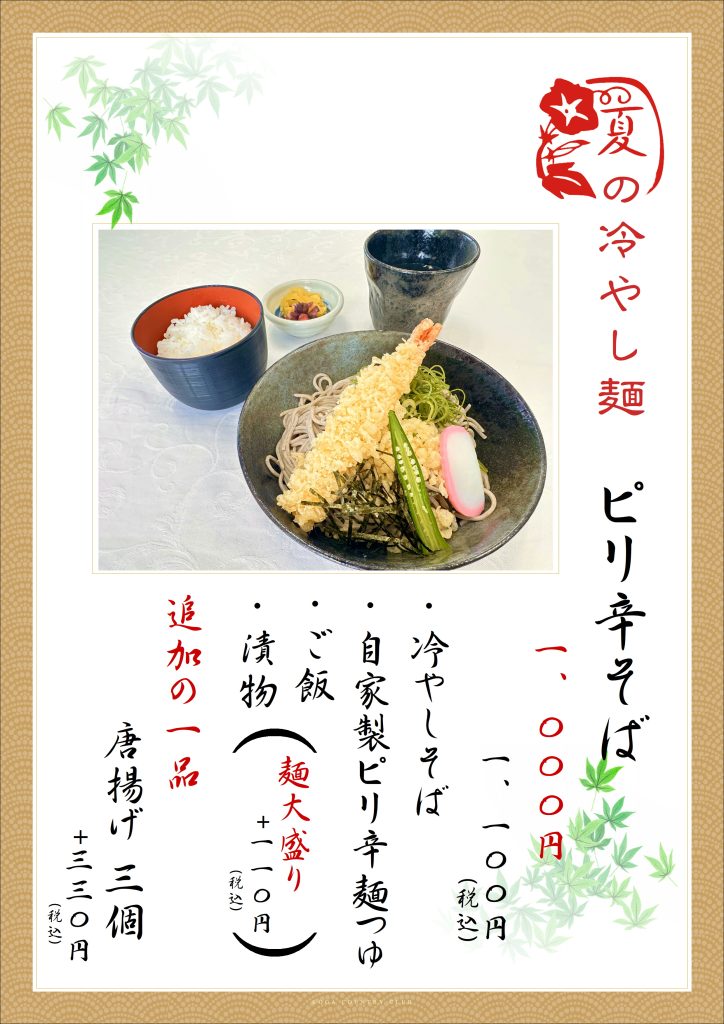 夏の冷やし麺
ピリ辛そば
一、〇〇〇円
一、一〇〇円
(税込)
・冷やしそば
・自家製ピリ辛麺つゆ
・ご飯
・漬物
(麺大盛り
+一一〇円
(税込))
追加の一品
唐揚げ 三個
+三三〇円
(税込)
KOGA COUNTRY CLUB